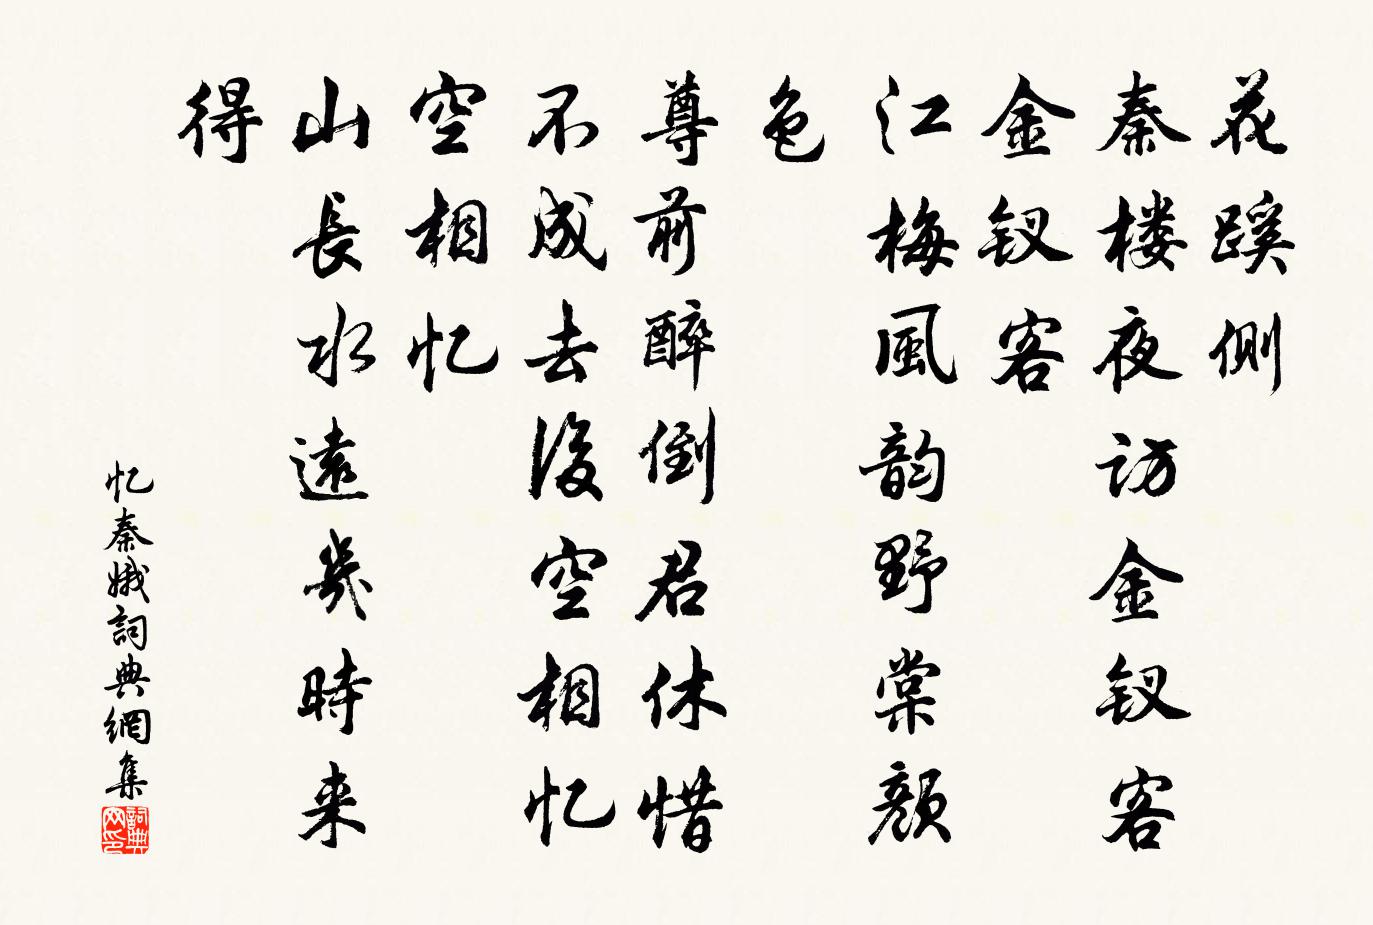 花蹊側
秦楼夜访金钗客
金钗客
江梅風韵野棠顔
色
尊前醉倒君休惜
不成去後空相忆
空相忆
山長水遠幾時来
得
忆秦娥詞典網集
詞典
网印